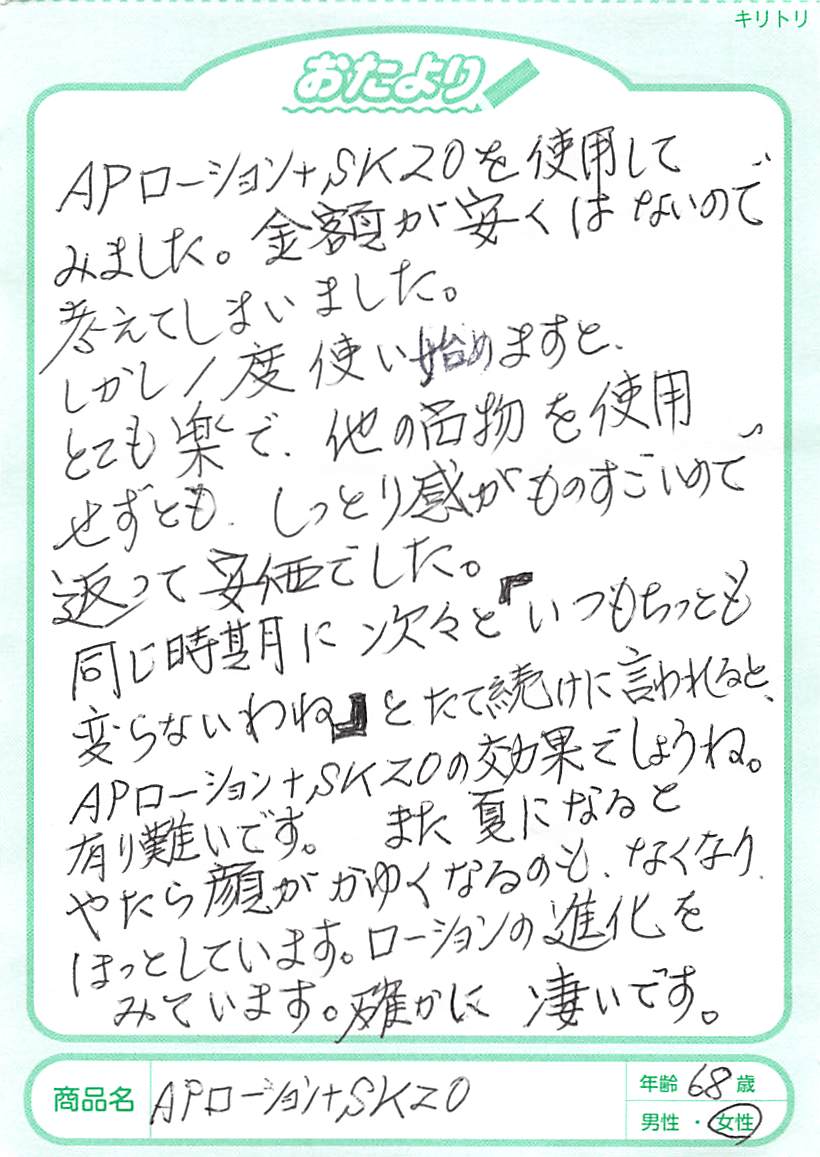 キリトリ
おたより
APローション+SK20を使用して
みました。金額が安くはないので
考えてしまいました。
しかし1度使い始めますと、
とても楽で、他の品物を使用
せずとも、しっとり感がものすごいので
返って安価でした。
同じ時期に次々と『いつもちっとも
変らないわね』とたて続けに言われると、
APローション+SK20の効果でしょうね。
有り難いです。 また夏になると
やたら顔がかゆくなるのも、なくなり、
ほっとしています。ローションの進化を
みています。確かに 凄いです。
商品名 APローション+SK20 年齢 68 歳
男性・女性